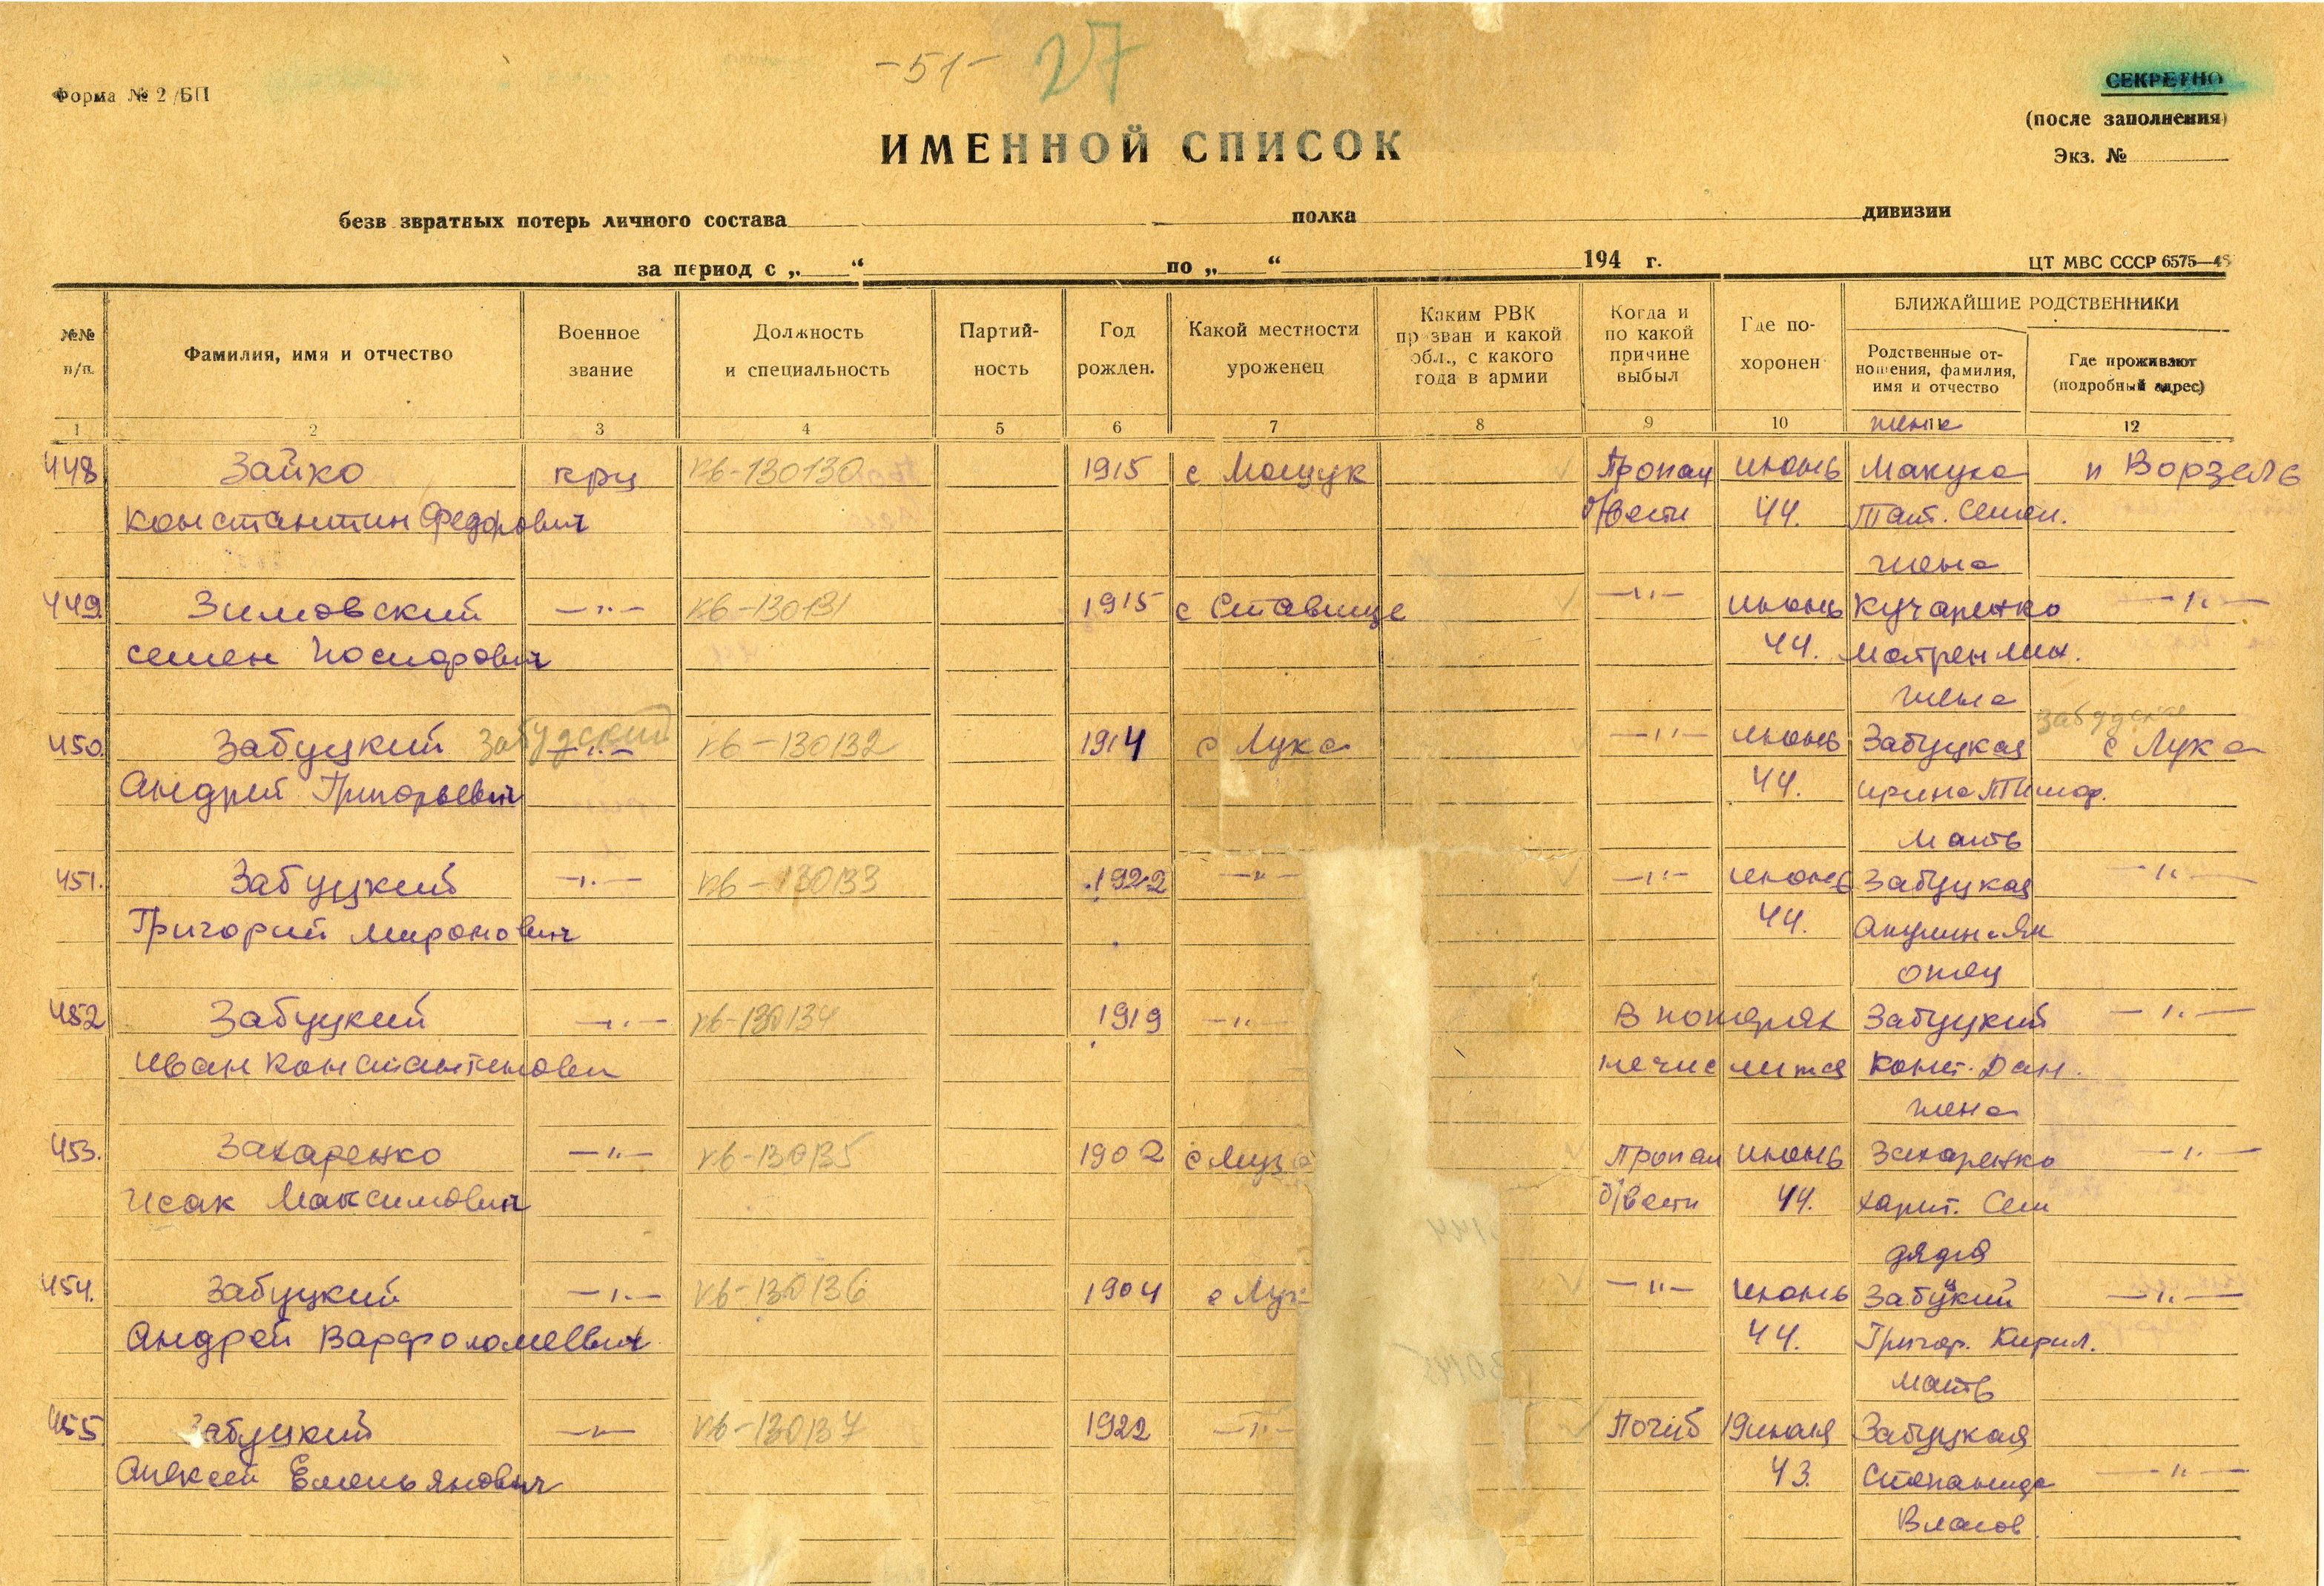 -51- 27
Форма № 2/БП
СЕКРЕТНО
(после заполнения)
Экз. №
ИМЕННОЙ СПИСОК
безв звратных потерь личного состава полка дивизии
за период с „ “ по „ “ 194 г.
ЦТ МВС СССР 6575—48
№№ п/п.
Фамилия, имя и отчество
Военное звание
Должность и специальность
Партийность
Год рожден.
Какой местности уроженец
Каким РВК призван и какой обл., с какого года в армии
Когда и по какой причине выбыл
Где похоронен
БЛИЖАЙШИЕ РОДСТВЕННИКИ
Родственные отношения, фамилия, имя и отчество
Где проживают (подробный адрес)
1 2 3 4 5 6 7 8 9 10 11 12
жена
448 Зайко крц кв-130130 1915 с Мощук Пропал июнь Макуха п Ворзель
Константин Федорович б/вести 44. Тат. Семен.
жена
449. Зимовский —"— кв-130131 1915 с Ставище —"— июнь Кучаренко —"—
Семен 44. Матрен Мих.
жена
450. Забуцкий Забудский —"— кв-130132 1914 с Лука —"— июнь Забуцкая с Лука
Андрей Григорьевич 44. Ирина Тимоф.
мать
451. Забуцкий —"— кв-130133 1922 —"— —"— июнь Забуцкая —"—
Григорий Миронович 44.
отец
452 Забуцкий —"— кв-130134 1919 —"— В потерях Забуцкий —"—
Иван Константинович не числится Конст. Дан.
жена
453. Захаренко —"— кв-130135 1902 Пропал июнь Захаренко —"—
Исак Максимович б/вести 44. Харит. Сем
дядя
454. Забуцкий —"— кв-130136 1904 —"— июнь Забуцкий —"—
Андрей Варфоломеевич 44. Григор. Кирил.
мать
455. Забуцкий —"— кв-130137 1922 —"— Погиб 19 июля Забуцкая
Алексей Емельянович 43. Степанида —"—
Власов